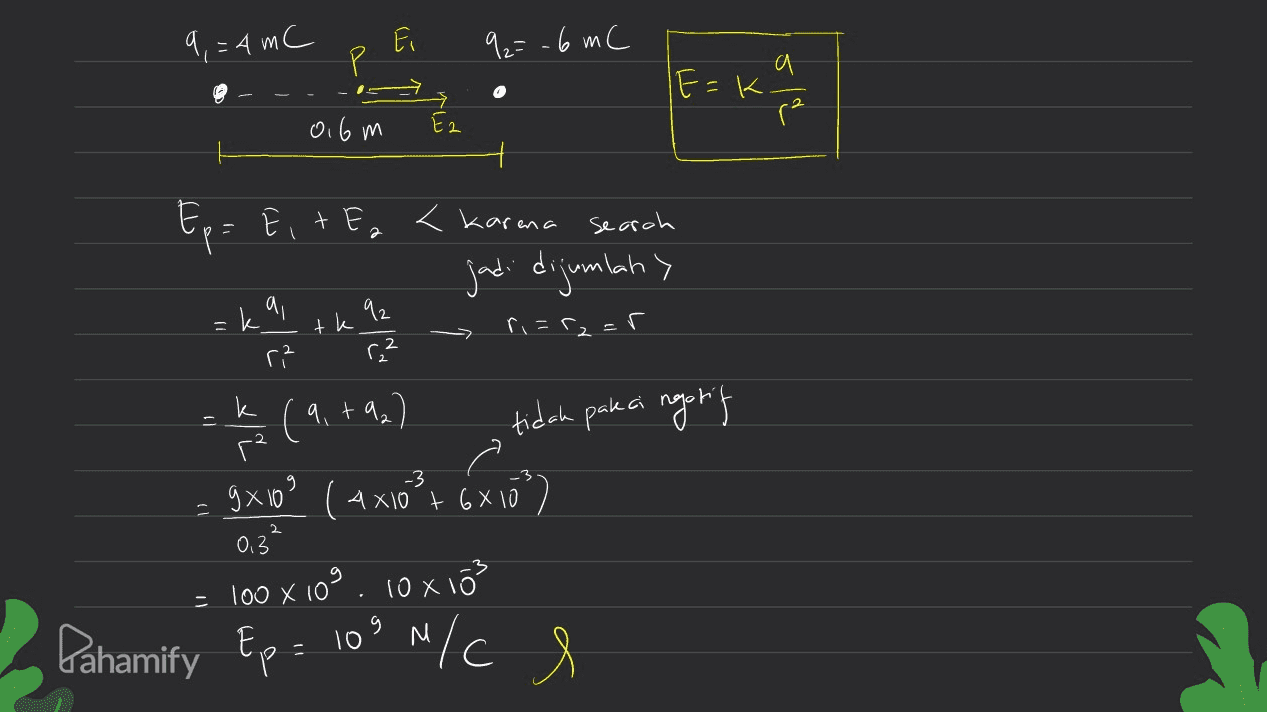 q₁ = 4 mC P E₁ q₂ = -6 mC
0,6 m E₂
E = k q/r²
Ep = E₁ + E₂ < karena searah
jadi dijumlah >
= k q₁/r₁² + k q₂/r₂² → r₁ = r₂ = r
= k/r² (q₁ + q₂)
tidak pakai negatif
= 9×10⁹/0,3² (4×10⁻³ + 6×10⁻³)
= 100 × 10⁹ . 10 × 10⁻³
Ep = 10⁹ N/C
Pahamify